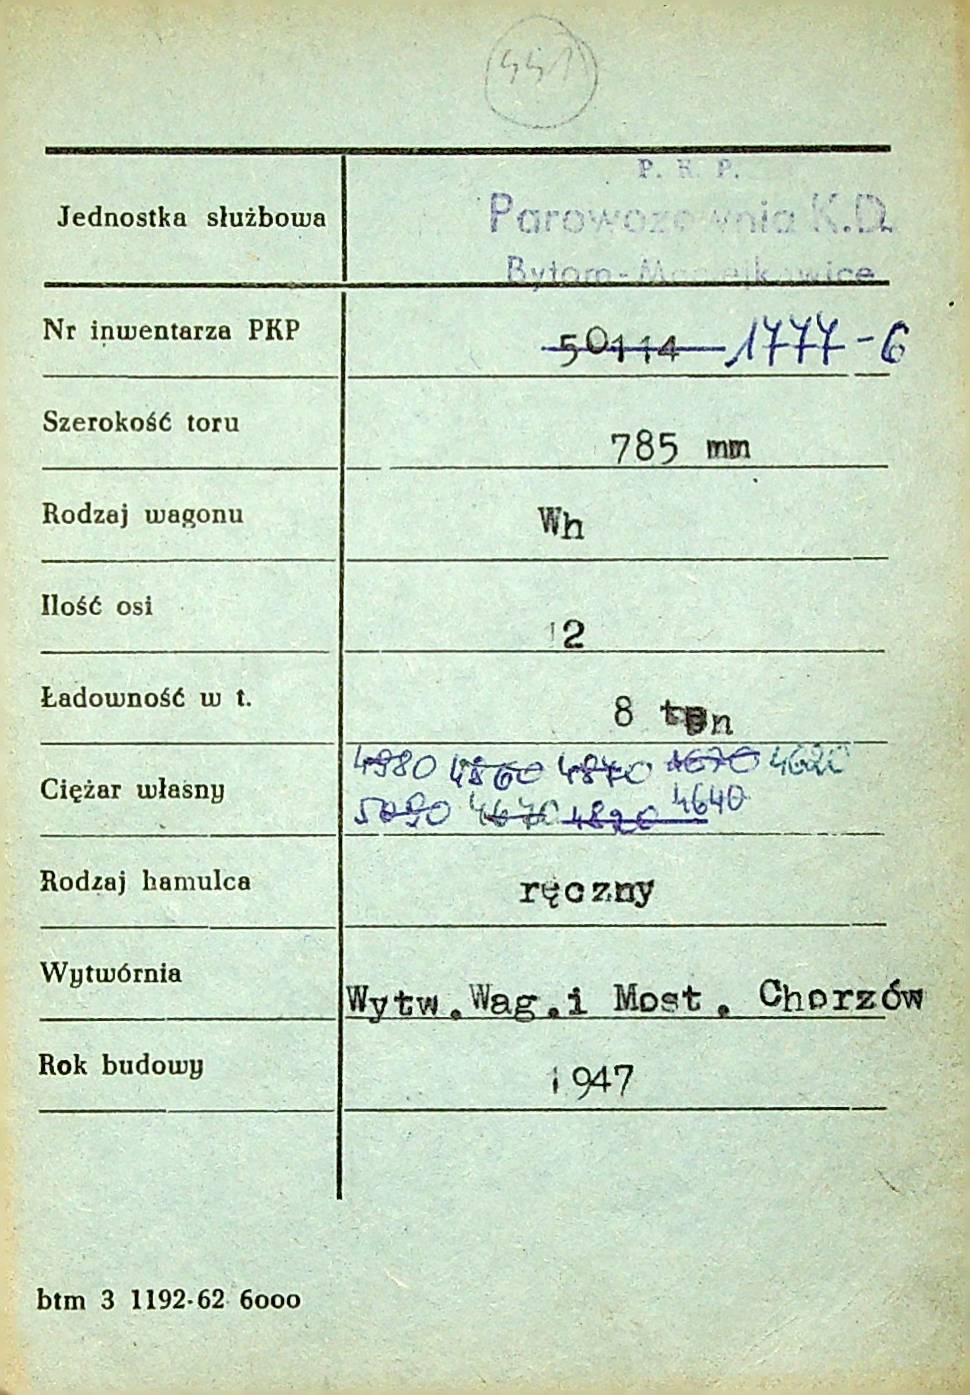 441
P. K. P.
Jednostka służbowa Parowozownia K.D.
Bytom-Maciejkowice
Nr inwentarza PKP 50114 1777-6
Szerokość toru 785 mm
Rodzaj wagonu Wh
Ilość osi 2
Ładowność w t. 8 ton
4980 4860 4840 4670 4620
Ciężar własny
5090 4670 4820 4640
Rodzaj hamulca ręczny
Wytwórnia Wytw.Wag.i Most. Chorzów
Rok budowy 1947
btm 3 1192-62 6000